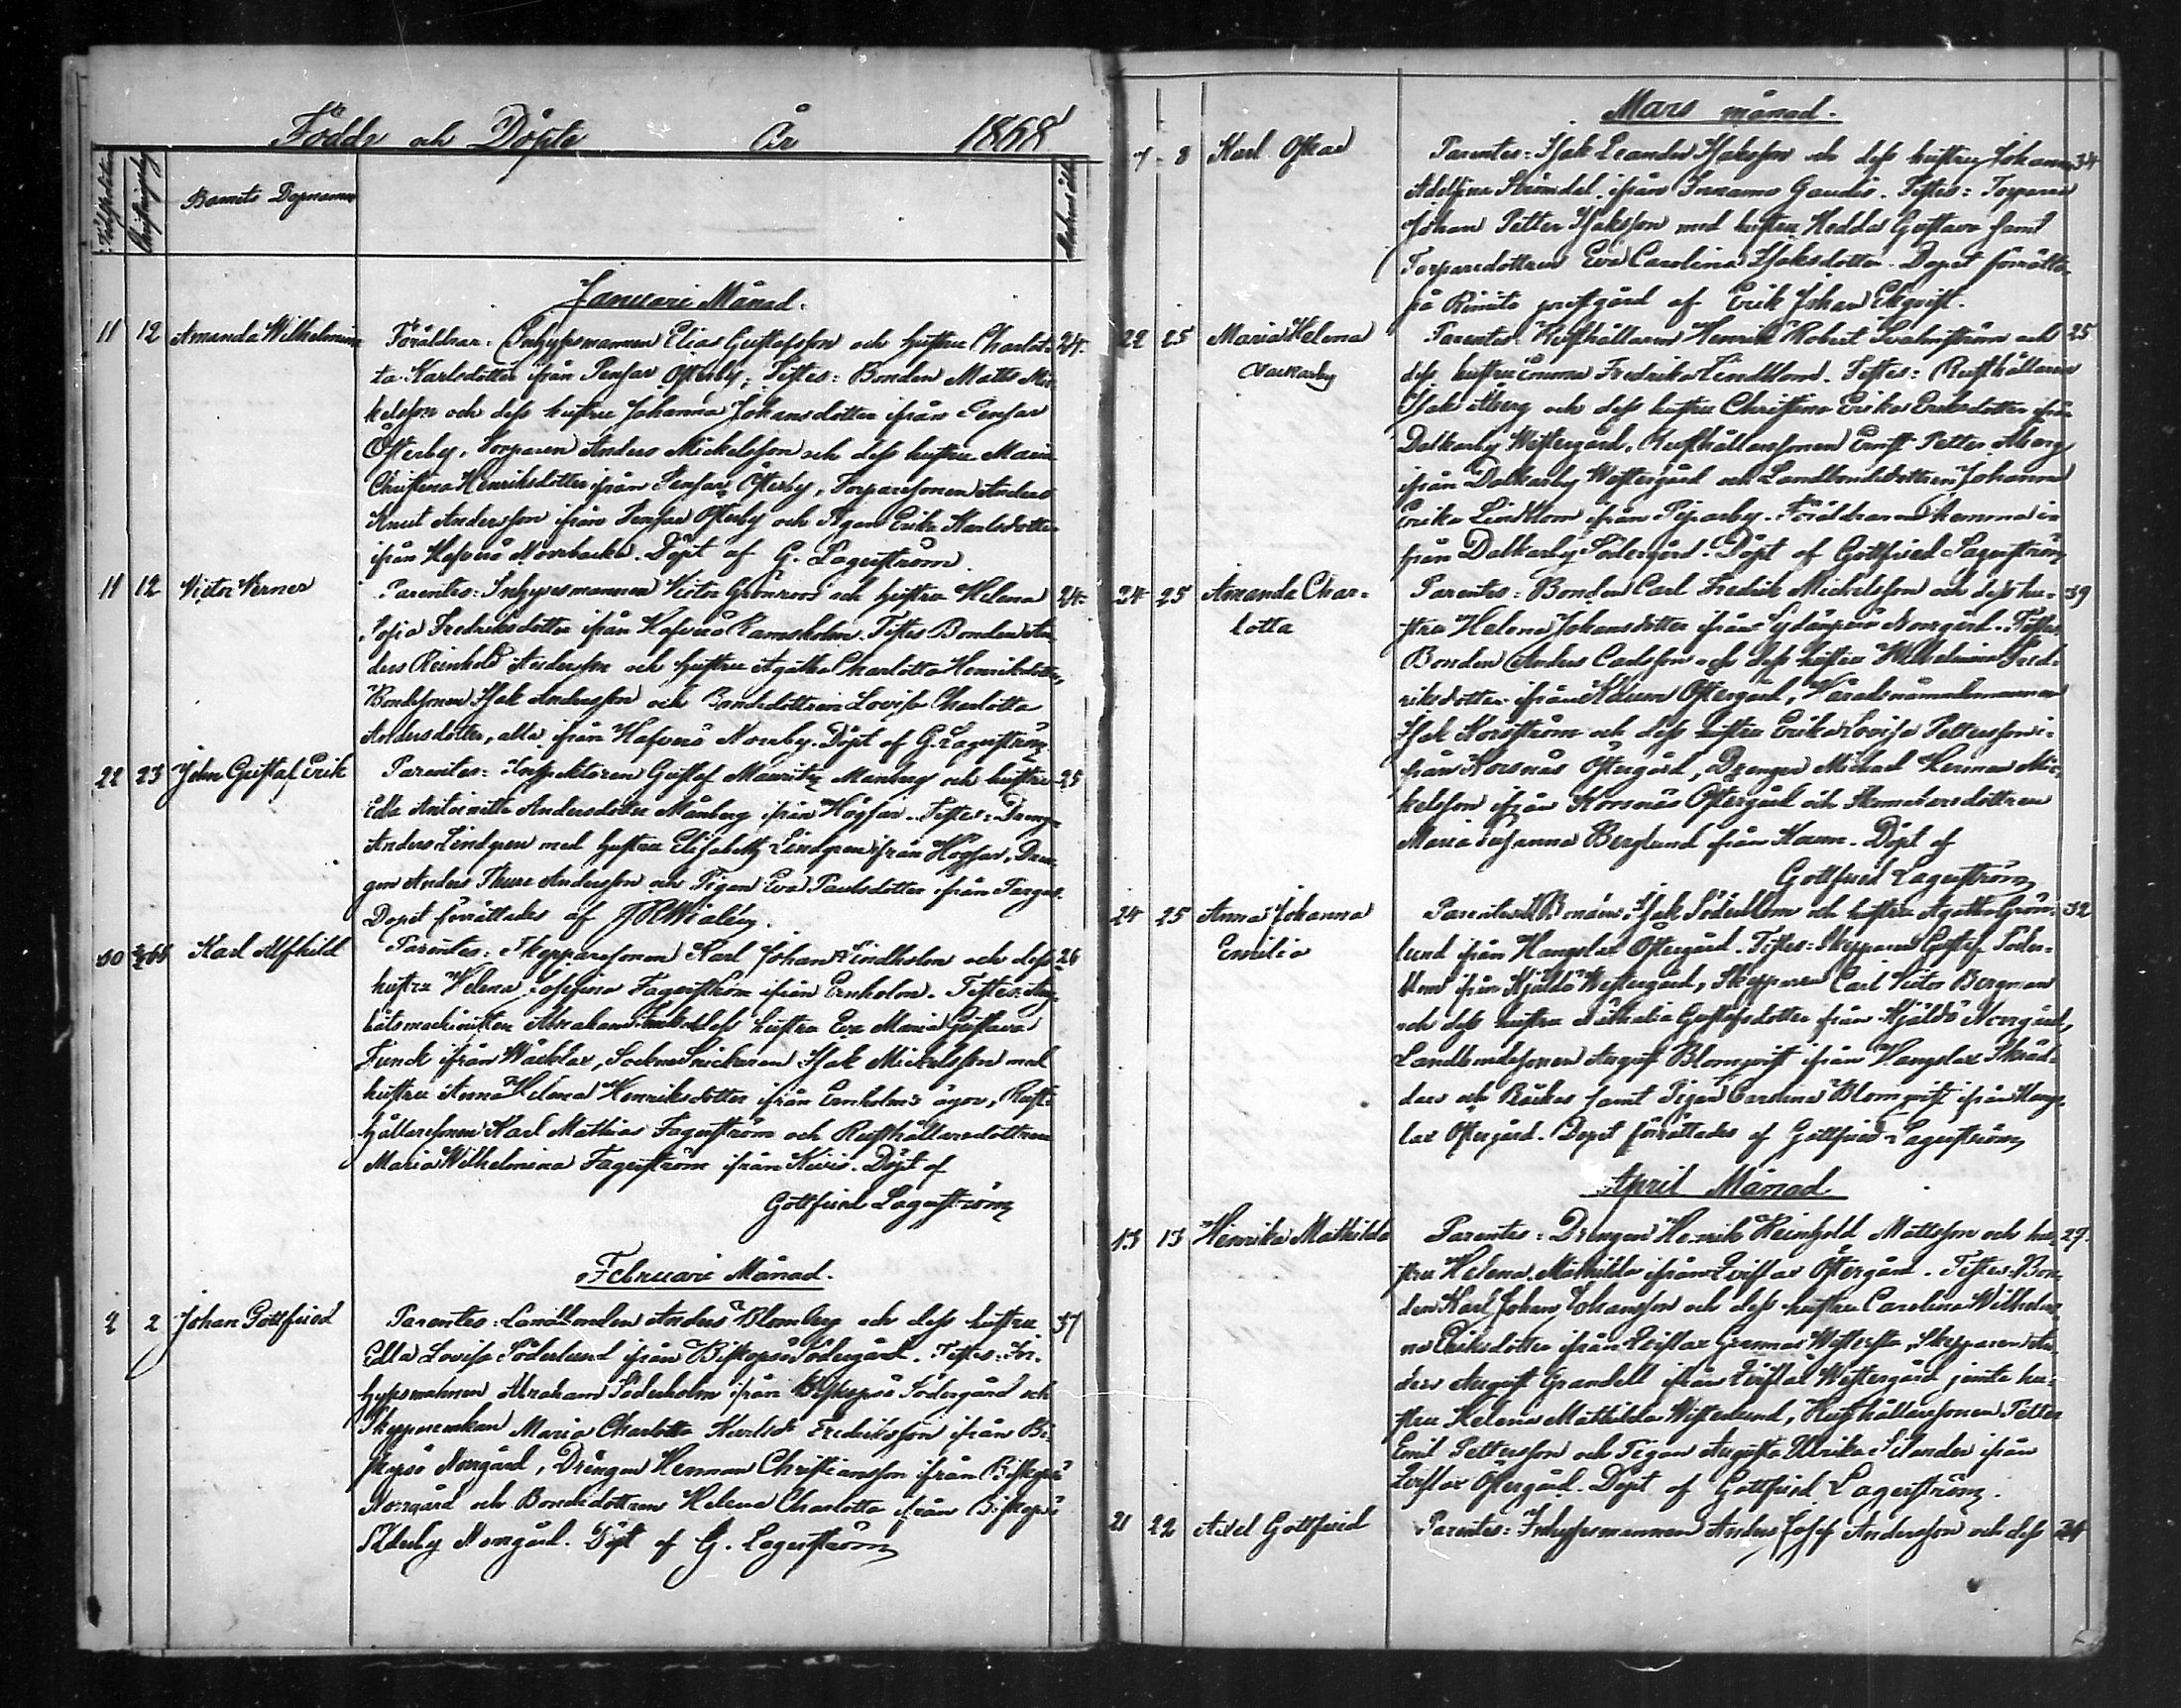 Födde och Döpte År 1868
Födelsetiden
Christningsdag
Barnets Dopnamn
Modrens ålder
Januari Månad.
11 12 Amanda Wilhelmina Föräldrar: Inhysesmannen Elias Gustafsson och hustru Charlot- 24.
ta Karlsdotter ifrån Pensar Österby; Testes: Bonden Matts Mic-
kelsson och dess hustru Johanna Johansdotter ifrån Pensar
Österby, Torparen Anders Mickelsson och dess hustru Maria
Christina Henriksdotter ifrån Pensar Österby, Torparesonen Anders
Knut Andersson ifrån Pensar Österby och Pigan Erika Karlsdotter
ifrån Hafverö Norrbacka. Döpt af G. Lagerström.
11 12 Victor Verner Parentes: Inhysesmannen Victor Grönroos och hustru Helena 24.
Sofia Fredriksdotter ifrån Hafverö Ramsholm. Testes Bonden An-
ders Reinhold Andersson och hustru Agatha Charlotta Henriksdotter,
Bondesonen Isak Andersson och Bondedottren Lovisa Charlotta
Andersdotter, alla ifrån Hafverö Norrby. Döpt af G. Lagerström
22 23 John Gustaf Erik Parentes: Inspektoren Gustaf Mauritz Manberg och hustru 25
Edla Antoinette Andersdotter Månberg ifrån Högsar. Testes: Dreng.
Anders Lindgren med hustru Elisabeth Lindgren ifrån Högsar, Dren-
gen Anders Thure Andersson och Pigan Eva Paulsdotter ifrån Pargas.
Dopet förrättades af
30 Karl Alfhild Parentes: Skepparesonen Karl Johan Lindholm och dess 26
hustru Helena Josefina Fagerström ifrån Ernholm. Testes: Ång-
båtsmachinisten Abraham Funck och dess hustru Eva Maria Gustava
Funck ifrån, Sockne Snickaren Isak Mickelsson med
hustru Anna Helena Henriksdotter ifrån Ernholms ägor, Rust-
hållaresonen Karl Mathias Fagerström och Rusthållaredottren
Maria Wilhelmina Fagerström ifrån Kivis. Döpt af
Gottfried Lagerström
Februari Månad.
2 2 Johan Gottfried Parentes: Landbonden Anders Blomberg och dess hustru 37
Edla Lovisa Söderlund ifrån Biskopsö Södergård. Testes: In-
hysesmannen Abraham Söderholm ifrån Biskopsö Södergård och
Skepparenkan Maria Charlotta Karlsdr Fredriksson ifrån Bi-
skopsö Norrgård, Drängen Herman Christiansson ifrån Biskopsö
Norrgård och Bondedottren Helena Charlotta ifrån Biskopsö
Norrgård. Döpt af G. Lagerström
Mars månad.
7 8 Karl Oskar Parentes: Isak Leander Isaksson och dess hustru Johanna 34
Adolfina Strömdal ifrån Innamo. Testes: Torparen
Johan Petter Isaksson med hustru Hedda Gustava samt
Torparedottren Eva Carolina Isaksdotter. Dopet förrätta.
på Rimito prestgård af Erik Johan Ekqvist.
22 25 Maria Helena Parentes: Rusthållaren Henrik Robert Svalmström och 25
Dalkarby dess hustru Emma Fredrika Lindblom. Testes: Rusthållaren
Isak Åberg och dess hustru Christina Erika Eriksdotter ifrån
Dalkarby Westergård, Rusthållaresonen Ernst Petter Åberg
ifrån Dalkarby Westergård och Landbondedottren Johanna
Erika Lindblom ifrån Piparby. Föräldrarna hemma i
från Dalkarby Södergård. Döpt af Gottfried Lagerström
24 25 Amanda Char- Parentes: Bonden Carl Fredrik Mickelsson och dess hu- 39
lotta stru Helena Johansdotter ifrån Norrgård. Testes
Bonden Anders Carlsson och dess hustru Wilhelmina Fred-
riksdotter ifrån Östergård, Häradsnämndemannen
Isak Korsström och dess hustru Erika Lovisa Pettersson i-
från Korsnäs Östergård, Drengen Michael Herman Mic-
kelsson ifrån Korsnäs Östergård och Skomakaredottren
Maria Susanna Berglund ifrån Karun. Döpt af
Gottfried Lagerström
24 25 Anna Johanna Parentes: Bonden Isak Söderblom och hustru Agatha Grön- 32
Emilia lund ifrån Hangslax Östergård. Testes: Skepparen Gustaf Söder-
blom ifrån Hjäldö Westergård, Skepparen Carl Victor Bergman
och dess hustru Nathalia Gustafsdotter ifrån Hjäldö Norrgård,
Landbondesonen August Blomqvist ifrån Hangslax Skräd-
dars och Räckas samt Pigan Carolina Blomqvist ifrån Hangs-
lax Östergård. Dopet förrättades af Gottfried Lagerström
April Månad
13 13 Henrika Mathilda Parentes: Drengen Henrik Reinhold Mattsson och hu- 29.
stru Helena Mathilda ifrån Östergård. Testes: Bon-
den Karl Johan Johansson och dess hustru Carolina Wilhelmi-
na Eriksdotter ifrån, Skepparen An-
ders August Grandell ifrån Westergård jemte hu-
stru Helena Mathilda Westerlund, Rusthållaresonen Petter
Emil Pettersson och Pigan Augusta Ulrika Silander ifrån
Östergård. Döpt af Gottfried Lagerström.
21 22 Axel Gottfried Parentes: Inhysesmannen Anders Josef Andersson och dess 24